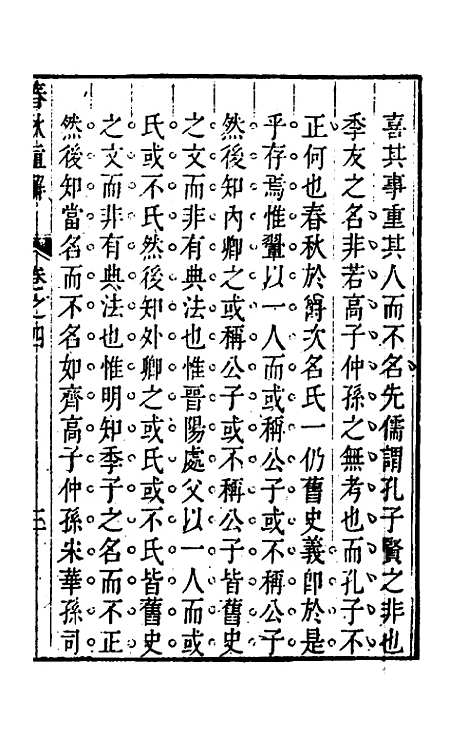 喜其事重其人而不名先儒謂孔子賢之非也
季友之名非若高子仲孫之無考也而孔子不
正何也春秋於爵次名氏一仍舊史義卽於是
乎存焉惟翬以一人而或稱公子或不稱公子
然後知內卿之或稱公子或不稱公子皆舊史
之文而非有典法也惟晉陽處父以一人而或
氏或不氏然後知外卿之或氏或不氏皆舊史
之文而非有典法也惟明知季子之名而不正
然後知當名而不名如齊高子仲孫宋華孫司
春秋直解 卷之四 三